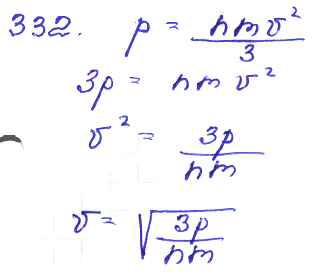 332. p = nmv²/3
3p = nmv²
v² = 3p/nm
v = √(3p/nm)